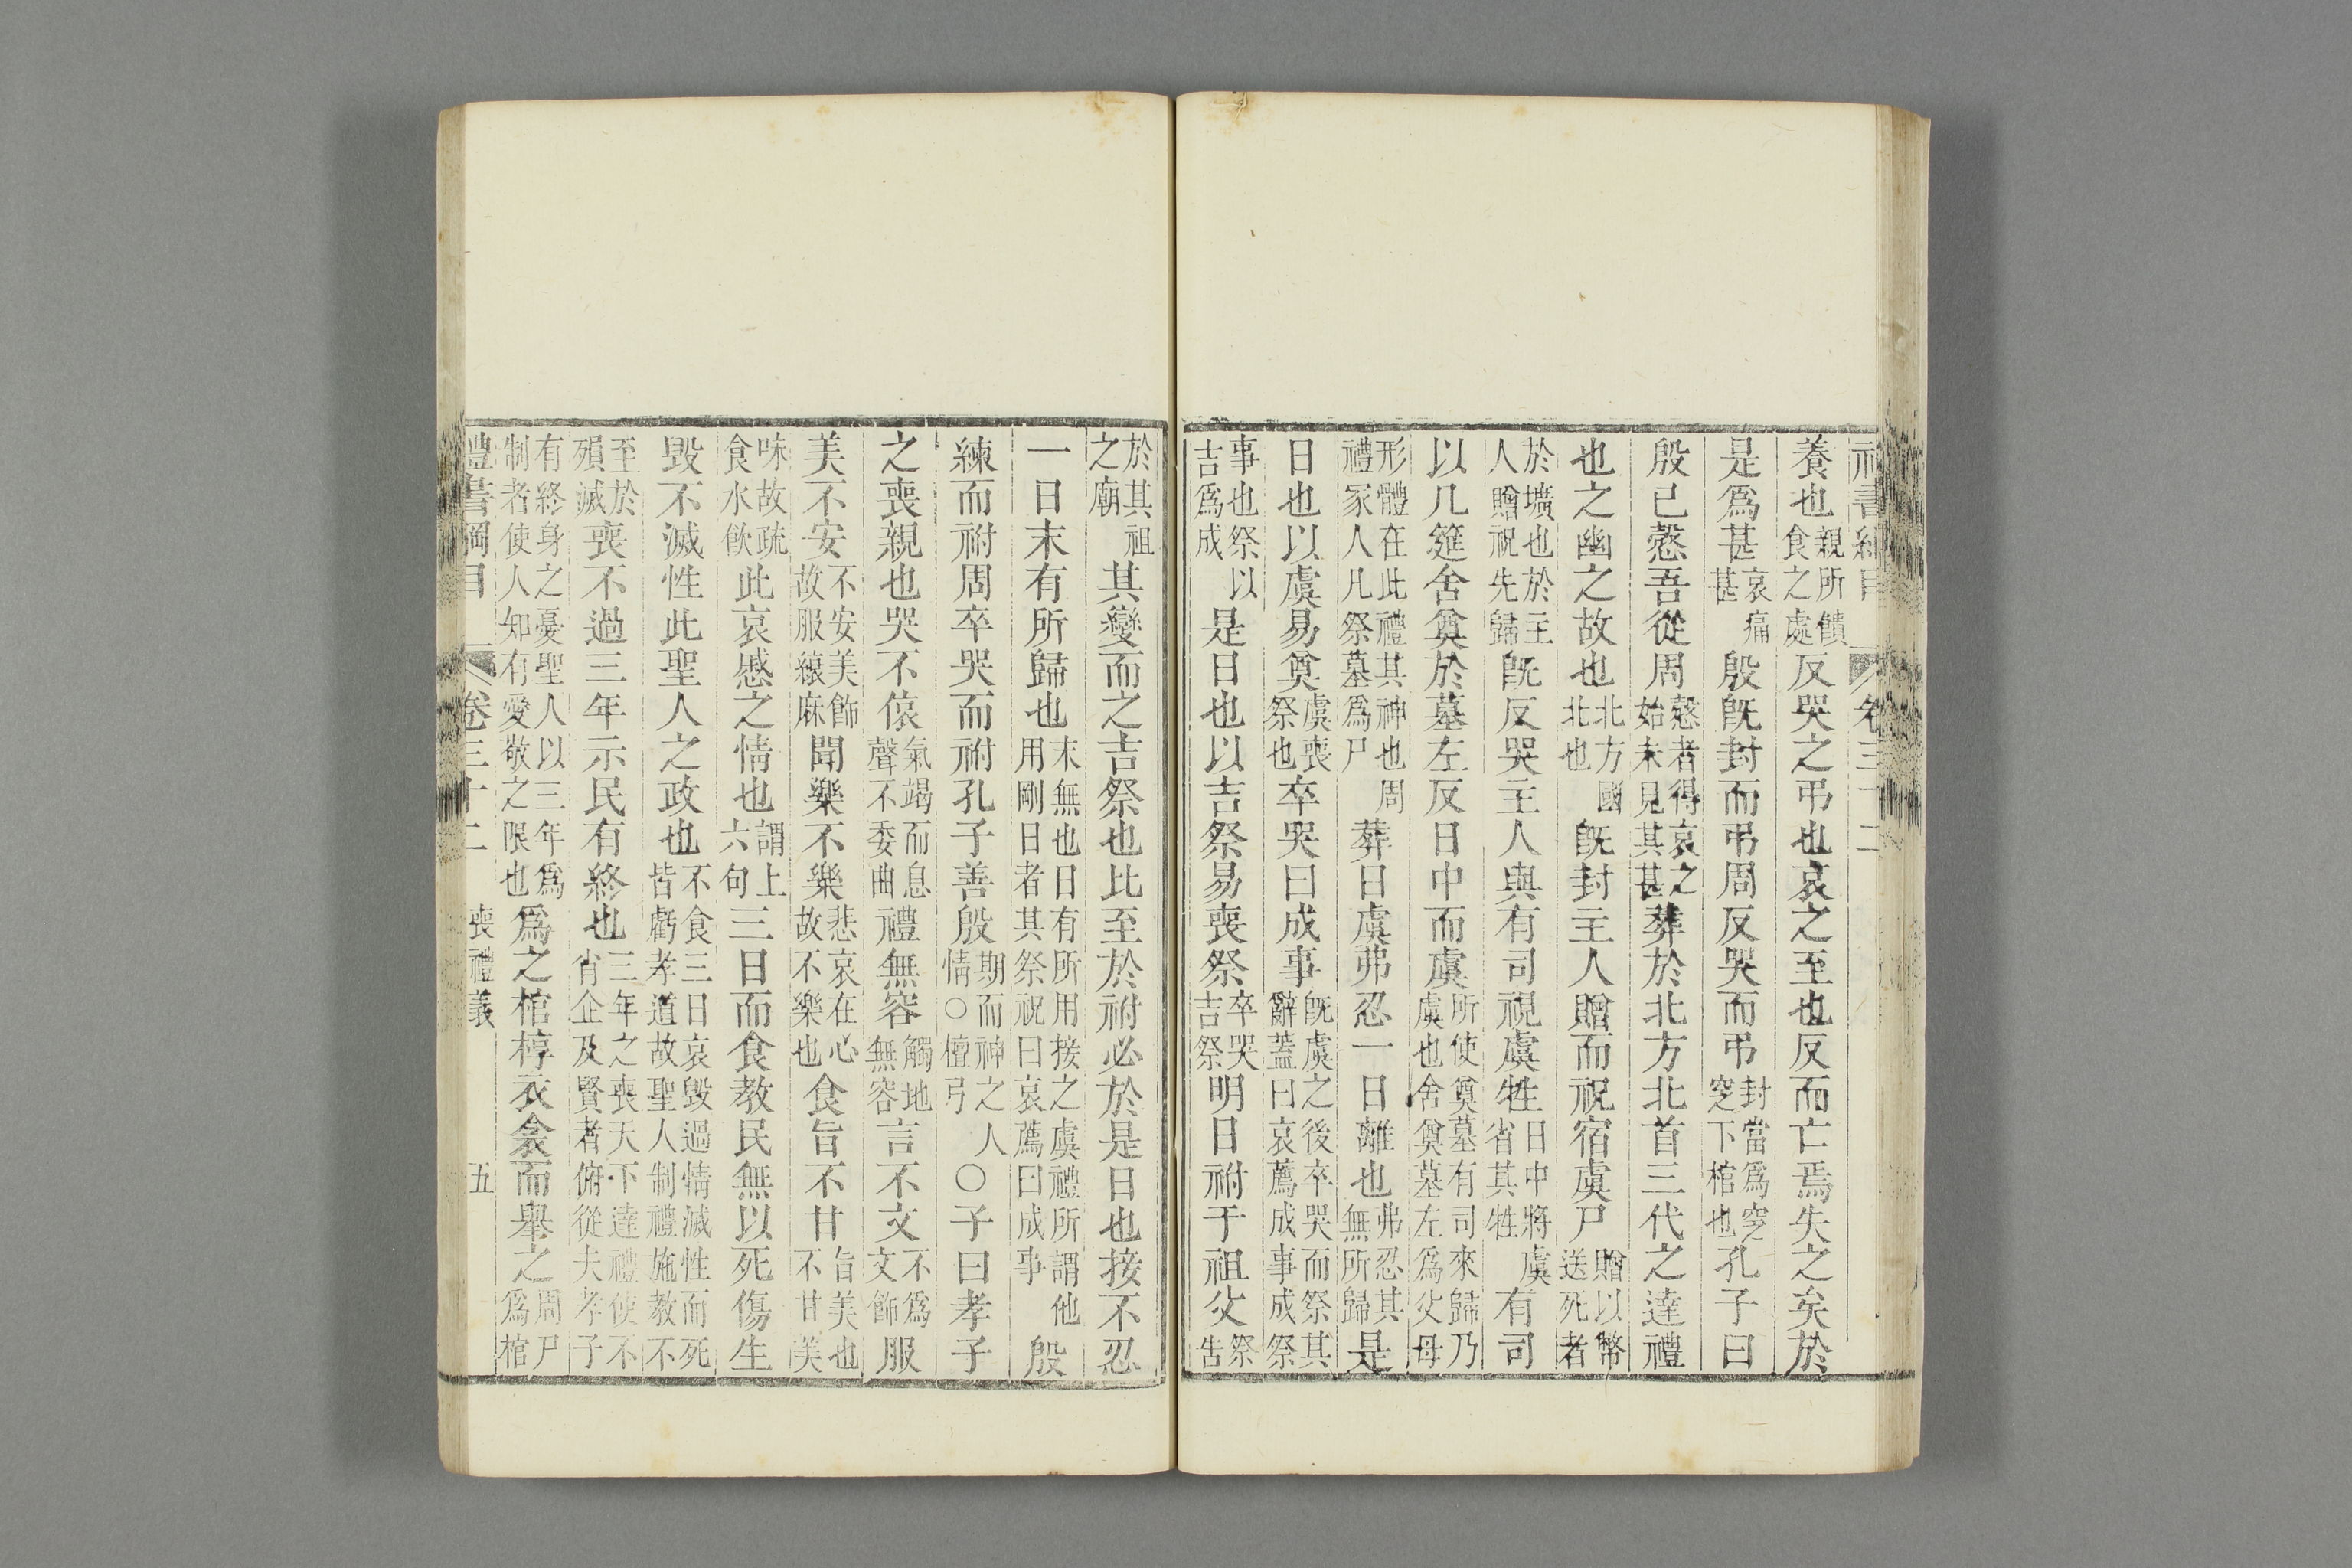 禮書綱目 卷三十二
養也親所饋食之處反哭之弔也哀之至也反而亡焉失之矣於
是爲甚哀痛甚殷旣封而弔周反哭而弔封當爲窆窆下棺也孔子曰
殷已愨吾從周愨者得哀之始未見其甚葬於北方北首三代之達禮
也之幽之故也北方國北也旣封主人贈而祝宿虞尸贈以幣送死者
於壙也於主人贈祝先歸旣反哭主人與有司視虞牲日中將虞省其牲有司
以几筵舍奠於墓左反日中而虞所使奠墓有司來歸乃虞也舍奠墓左爲父母
形體在此禮其神也周禮冢人凡祭墓爲尸葬日虞弗忍一日離也弗忍其無所歸是
日也以虞易奠虞喪祭也卒哭曰成事旣虞之後卒哭而祭其辭蓋曰哀薦成事成祭
事也祭以吉爲成是日也以吉祭易喪祭卒哭吉祭明日祔于祖父祭告
於其祖之廟其變而之吉祭也比至於祔必於是日也接不忍
一日末有所歸也末無也日有所用接之虞禮所謂他用剛日者其祭祝曰哀薦曰成事殷
練而祔周卒哭而祔孔子善殷期而神之人情○檀弓○子曰孝子
之喪親也哭不偯氣竭而息聲不委曲禮無容觸地無容言不文不爲文飾服
美不安不安美飾故服縗麻聞樂不樂悲哀在心故不樂也食旨不甘旨美也不甘美
味故疏食水飲此哀慼之情也謂上六句三日而食教民無以死傷生
毀不滅性此聖人之政也不食三日哀毀過情滅性而死皆虧孝道故聖人制禮施教不
至於殞滅喪不過三年示民有終也三年之喪天下達禮使不肖企及賢者俯從夫孝子
有終身之憂聖人以三年爲制者使人知有愛敬之限也爲之棺椁衣衾而舉之周尸爲棺
禮書綱目 卷三十二 喪禮義 五